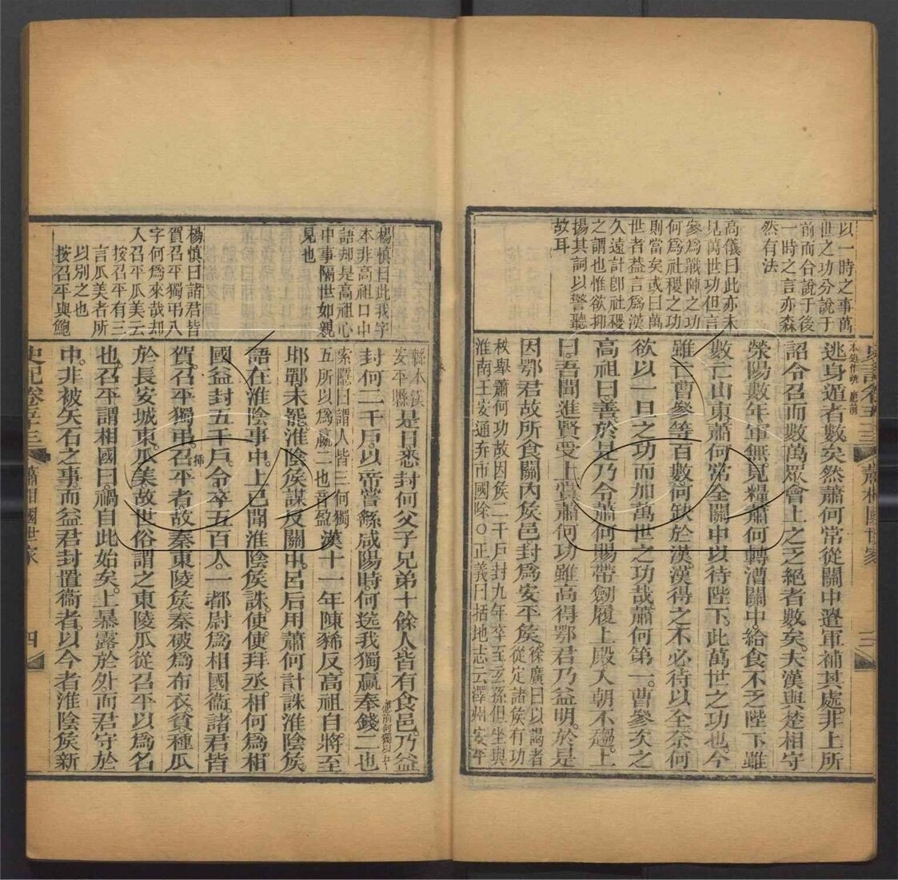 以一時之事萬
世之功分說于
前而合說于後
一時之言亦森
然有法
高儀曰此亦未
見萬世功但言
參爲戰陣之功
何爲社稷之功
則當矣或曰萬
世者葢言爲漢
久遠計卽社稷
之謂也惟欲抑
揚其詞以警聽
故耳
逃身遁者數矣然蕭何常從關中遣軍補其處非上所
詔令召而數萬眾會上之乏絕者數矣夫漢與楚相守
滎陽數年軍無見糧蕭何轉漕關中給食不乏陛下雖
數亡山東蕭何常全關中以待陛下此萬世之功也今
雖亡曹參等百數何缺於漢漢得之不必待以全奈何
欲以一旦之功而加萬世之功哉蕭何第一曹參次之
高祖曰善於是乃令蕭何賜帶劒履上殿入朝不趨上
曰吾聞進賢受上賞蕭何功雖高得鄂君乃益明於是
因鄂君故所食關內矦邑封爲安平矦徐廣曰以謁者從定諸矦有功
秩舉蕭何功故因矦二千戶封九年卒至玄孫但坐與
淮南王安通弃市國除○正義曰括地志云澤州安平
史記卷五十三 蕭相國世家 三
楊慎曰此我字
本非高祖口中
語却是高祖心
中事隔世如親
見也
楊慎曰諸君皆
賀召平獨弔八
字何爲來哉却
入召平瓜美云
按召平有三
言瓜美者所
以別之也
按召平與鮑
縣本漢安平縣是日悉封何父子兄弟十餘人皆有食邑乃益
封何二千戶以帝嘗繇咸陽時何送我獨贏奉錢二也
索隱曰謂人皆三何獨五所以爲贏二也音盈漢十一年陳豨反高祖自將至
邯鄲未罷淮陰矦謀反關中呂后用蕭何計誅淮陰矦
語在淮陰事中上已聞淮陰矦誅使使拜丞相何爲相
國益封五千戶令卒五百人一都尉爲相國衞諸君皆
賀召平獨弔召平者故秦東陵矦秦破爲布衣貧種瓜
於長安城東瓜美故世俗謂之東陵瓜從召平以爲名
也召平謂相國曰禍自此始矣上暴露於外而君守於
中非被矢石之事而益君封置衞者以今者淮陰矦新
史記卷五十三 蕭相國世家 四